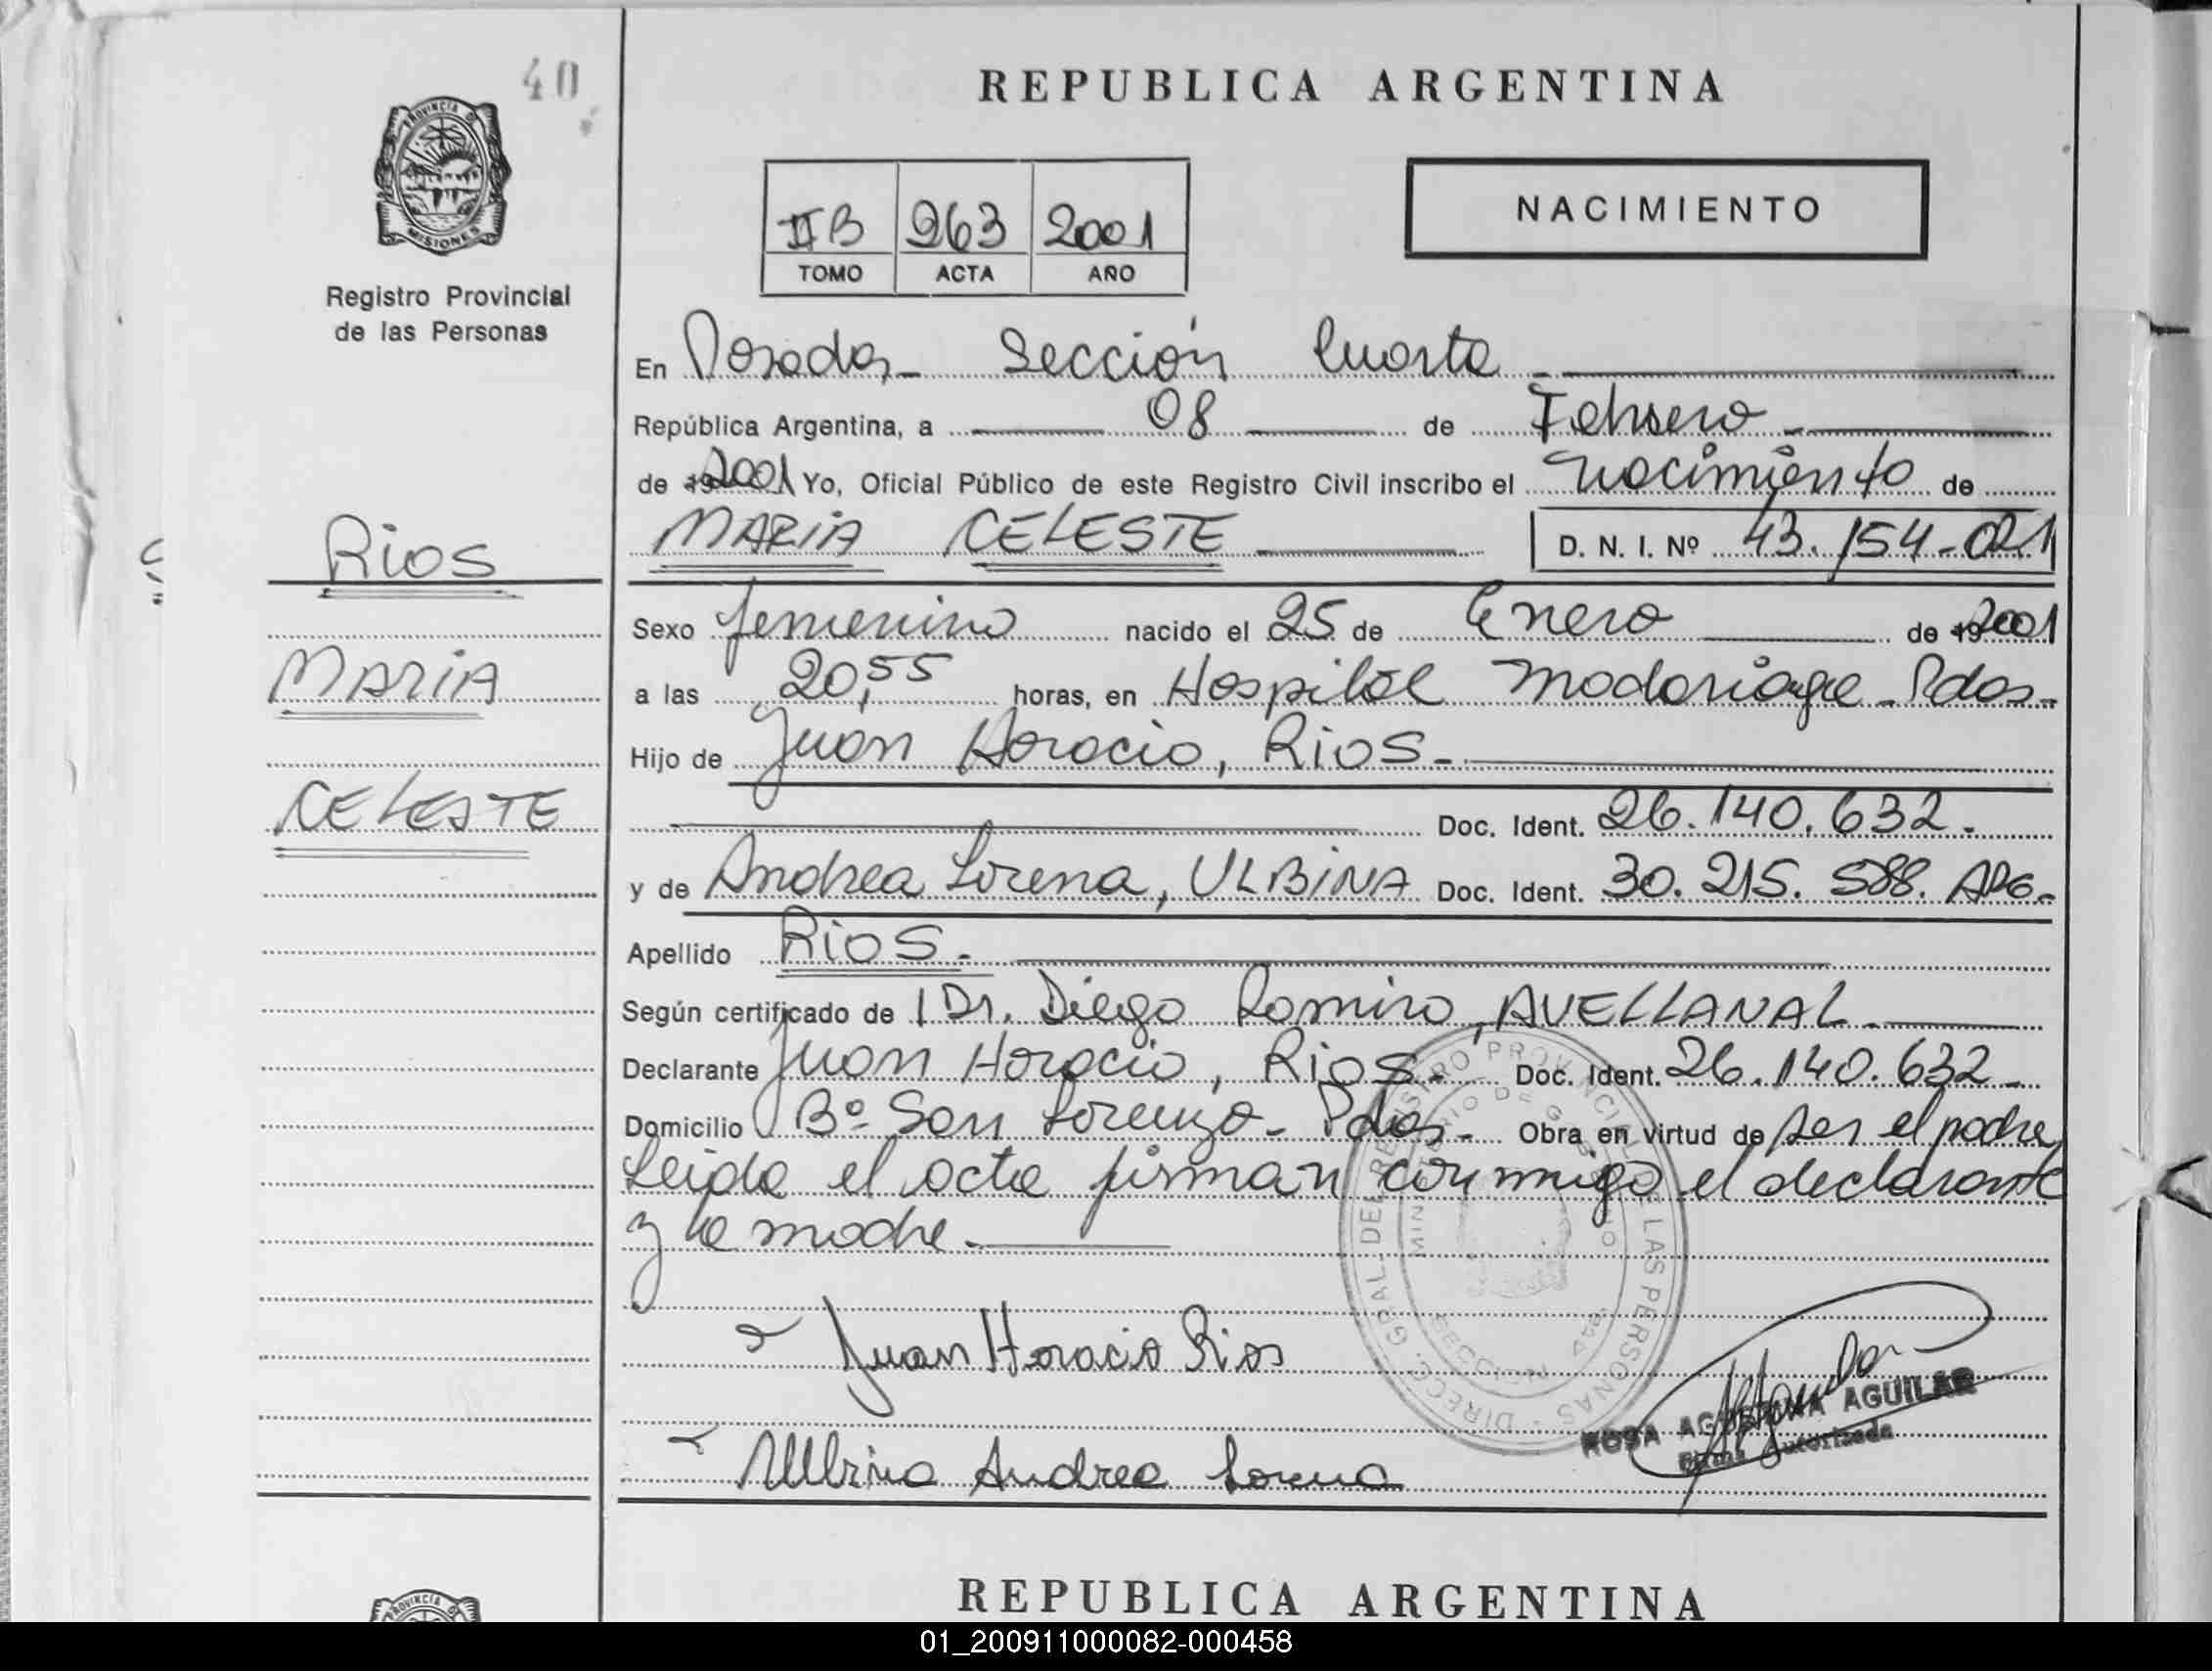 40
REPUBLICA ARGENTINA
PROVINCIA DE
MISIONES
IIB 263 2001
TOMO ACTA AÑO
NACIMIENTO
Registro Provincial
de las Personas
En Posadas - Sección Cuarta -
República Argentina, a 08 de Febrero -
de 2001 Yo, Oficial Público de este Registro Civil inscribo el nacimiento de
MARIA CELESTE D. N. I. Nº 43.154-021
Rios
MARIA
CELESTE
Sexo femenino nacido el 25 de Enero de 2001
a las 20,55 horas, en Hospital Madariaga - Pdas -
Hijo de Juan Horacio, Rios -
Doc. Ident. 26.140.632.
y de Andrea Lorena, ULBINA Doc. Ident. 30.215.588. ARG.-
Apellido Rios. -
Según certificado de Dr. Diego Ramiro, AVELLANAL -
Declarante Juan Horacio, Rios - Doc. Ident. 26.140.632 -
Domicilio Bº San Lorenzo - Pdas - Obra en virtud de ser el padre
Leida el acta firman conmigo el declarante
y la madre. -
Juan Horacio Rios
Ulbina Andrea Lorena
DIRECC. GRAL. DEL REGISTRO PROVINCIAL DE LAS PERSONAS
MINISTERIO DE GOBIERNO
ROSA AGUSTINA AGUILAR
Firma Autorizada
PROVINCIA D
REPUBLICA ARGENTINA
01_200911000082-000458